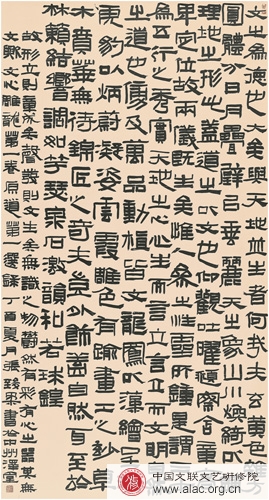 文之為德也大矣與天地並生者何哉夫玄黃色雜方
圓體分日月疊璧以垂麗天之象山川煥綺以鋪
理地之形此蓋道之文也仰觀吐曜俯察含章高
卑定位故兩儀既生矣惟人參之性靈所鍾是謂三才
為五行之秀實天地之心心生而言立言立而文明自然
之道也傍及萬品動植皆文龍鳳以藻繪呈瑞
虎豹以炳蔚凝姿雲霞雕色有踰畫工之妙草
木賁華無待錦匠之奇夫豈外飾蓋自然耳至於
林籟結響調如竽瑟泉石激韻和若球鍠
故形立則章成矣聲發則文生矣無識之物鬱然有彩有心之器其無
文歟文心雕龍第一卷原道第一選錄丁酉夏月張書於中州澤堂
中国文联文艺研修院
www.alac.org.cn